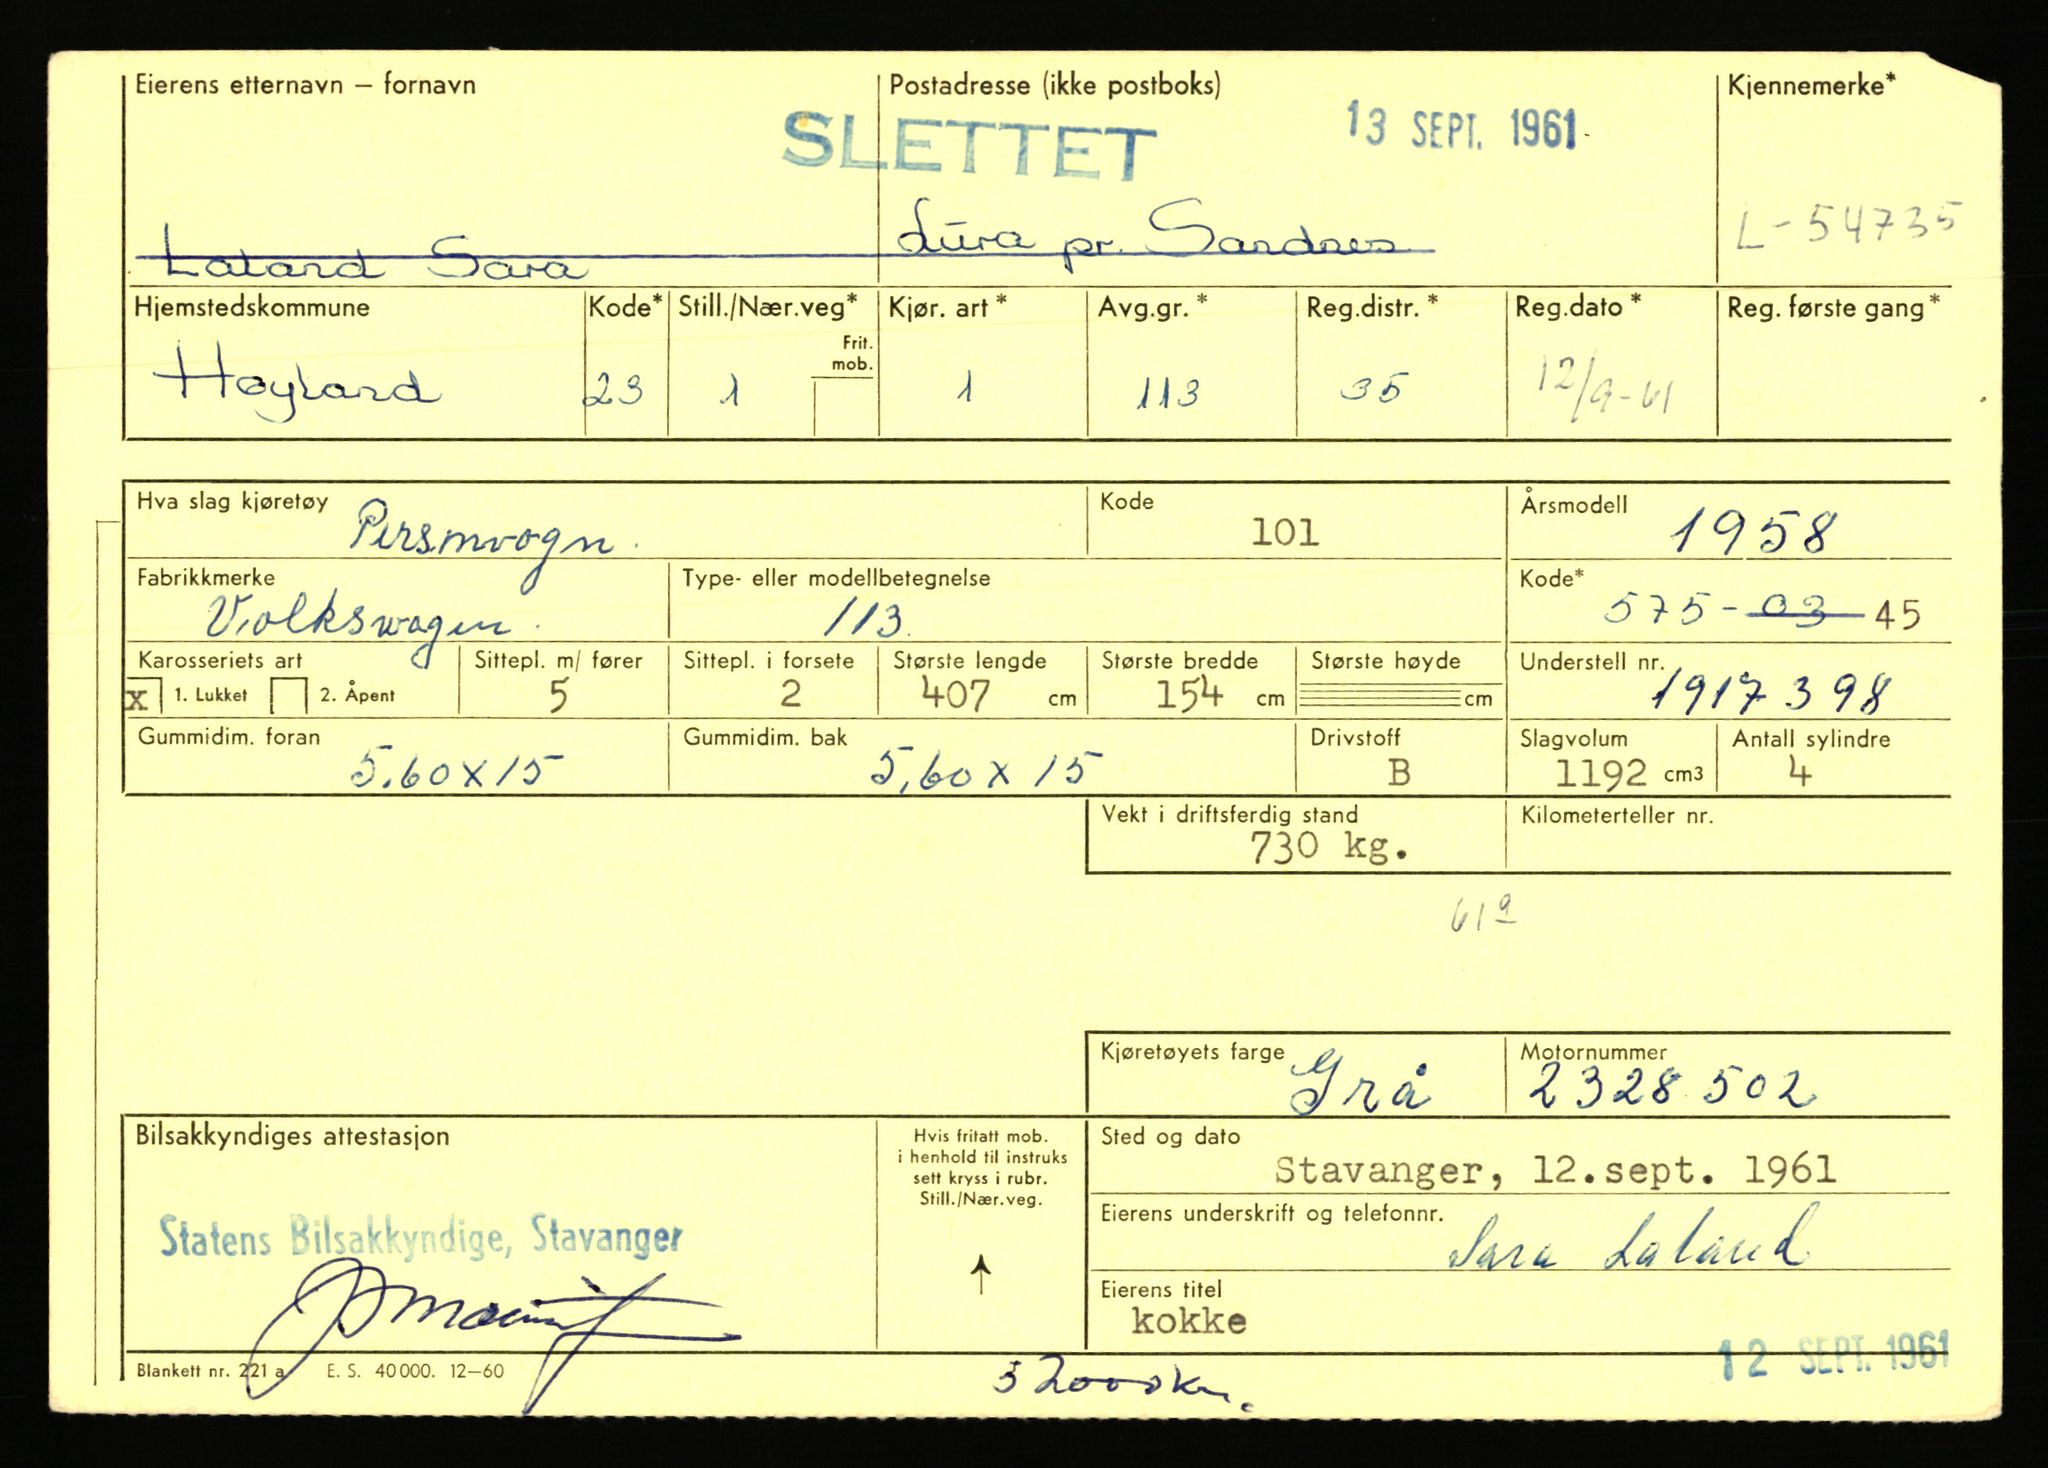 Eierens etternavn – fornavn
Postadresse (ikke postboks)
Kjennemerke*
SLETTET
13 SEPT. 1961
Laland Sara
Lura pr. Sandnes
L-54735
Hjemstedskommune
Kode*
Still./Nær.veg*
Frit. mob.
Kjør. art *
Avg.gr. *
Reg.distr. *
Reg.dato *
Reg. første gang *
Høyland
23
1
1
113
35
12/9-61
Hva slag kjøretøy
Personvogn.
Kode
101
Årsmodell
1958
Fabrikkmerke
Volkswagen.
Type- eller modellbetegnelse
113
Kode*
575-03 45
Karosseriets art
x 1. Lukket 2. Åpent
Sittepl. m/ fører
5
Sittepl. i forsete
2
Største lengde
407 cm
Største bredde
154 cm
Største høyde
cm
Understell nr.
1917398
Gummidim. foran
5.60x15
Gummidim. bak
5,60x15
Drivstoff
B
Slagvolum
1192 cm3
Antall sylindre
4
Vekt i driftsferdig stand
730 kg.
Kilometerteller nr.
61 9
Kjøretøyets farge
Grå
Motornummer
2328502
Bilsakkyndiges attestasjon
Hvis fritatt mob.
i henhold til instruks
sett kryss i rubr.
Still./Nær.veg.
Sted og dato
Stavanger, 12.sept. 1961
Statens Bilsakkyndige, Stavanger
Eierens underskrift og telefonnr.
Sara Laland
Eierens titel
kokke
12 SEPT. 1961
Blankett nr. 221 a E. S. 40 000. 12–60